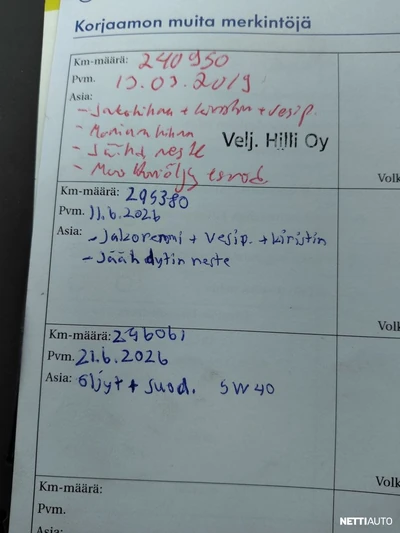 Korjaamon muita merkintöjä
Km-määrä: 240950
Pvm. 13.03.2019
Asia:
- Jakohihna + kiristin + vesip.
- Moniurahihna
- Jäähd. neste
Velj. Hilli Oy
Volk
Km-määrä: 295380
Pvm. 11.6.2026
Asia: - Jakoremmi + Vesip. + kiristin
- Jäähdytin neste
Volk
Km-määrä: 296061
Pvm. 21.6.2026
Asia: öljyt + suod. 5W40
Volk
Km-määrä:
Pvm.
Asia:
NETTIAUTO